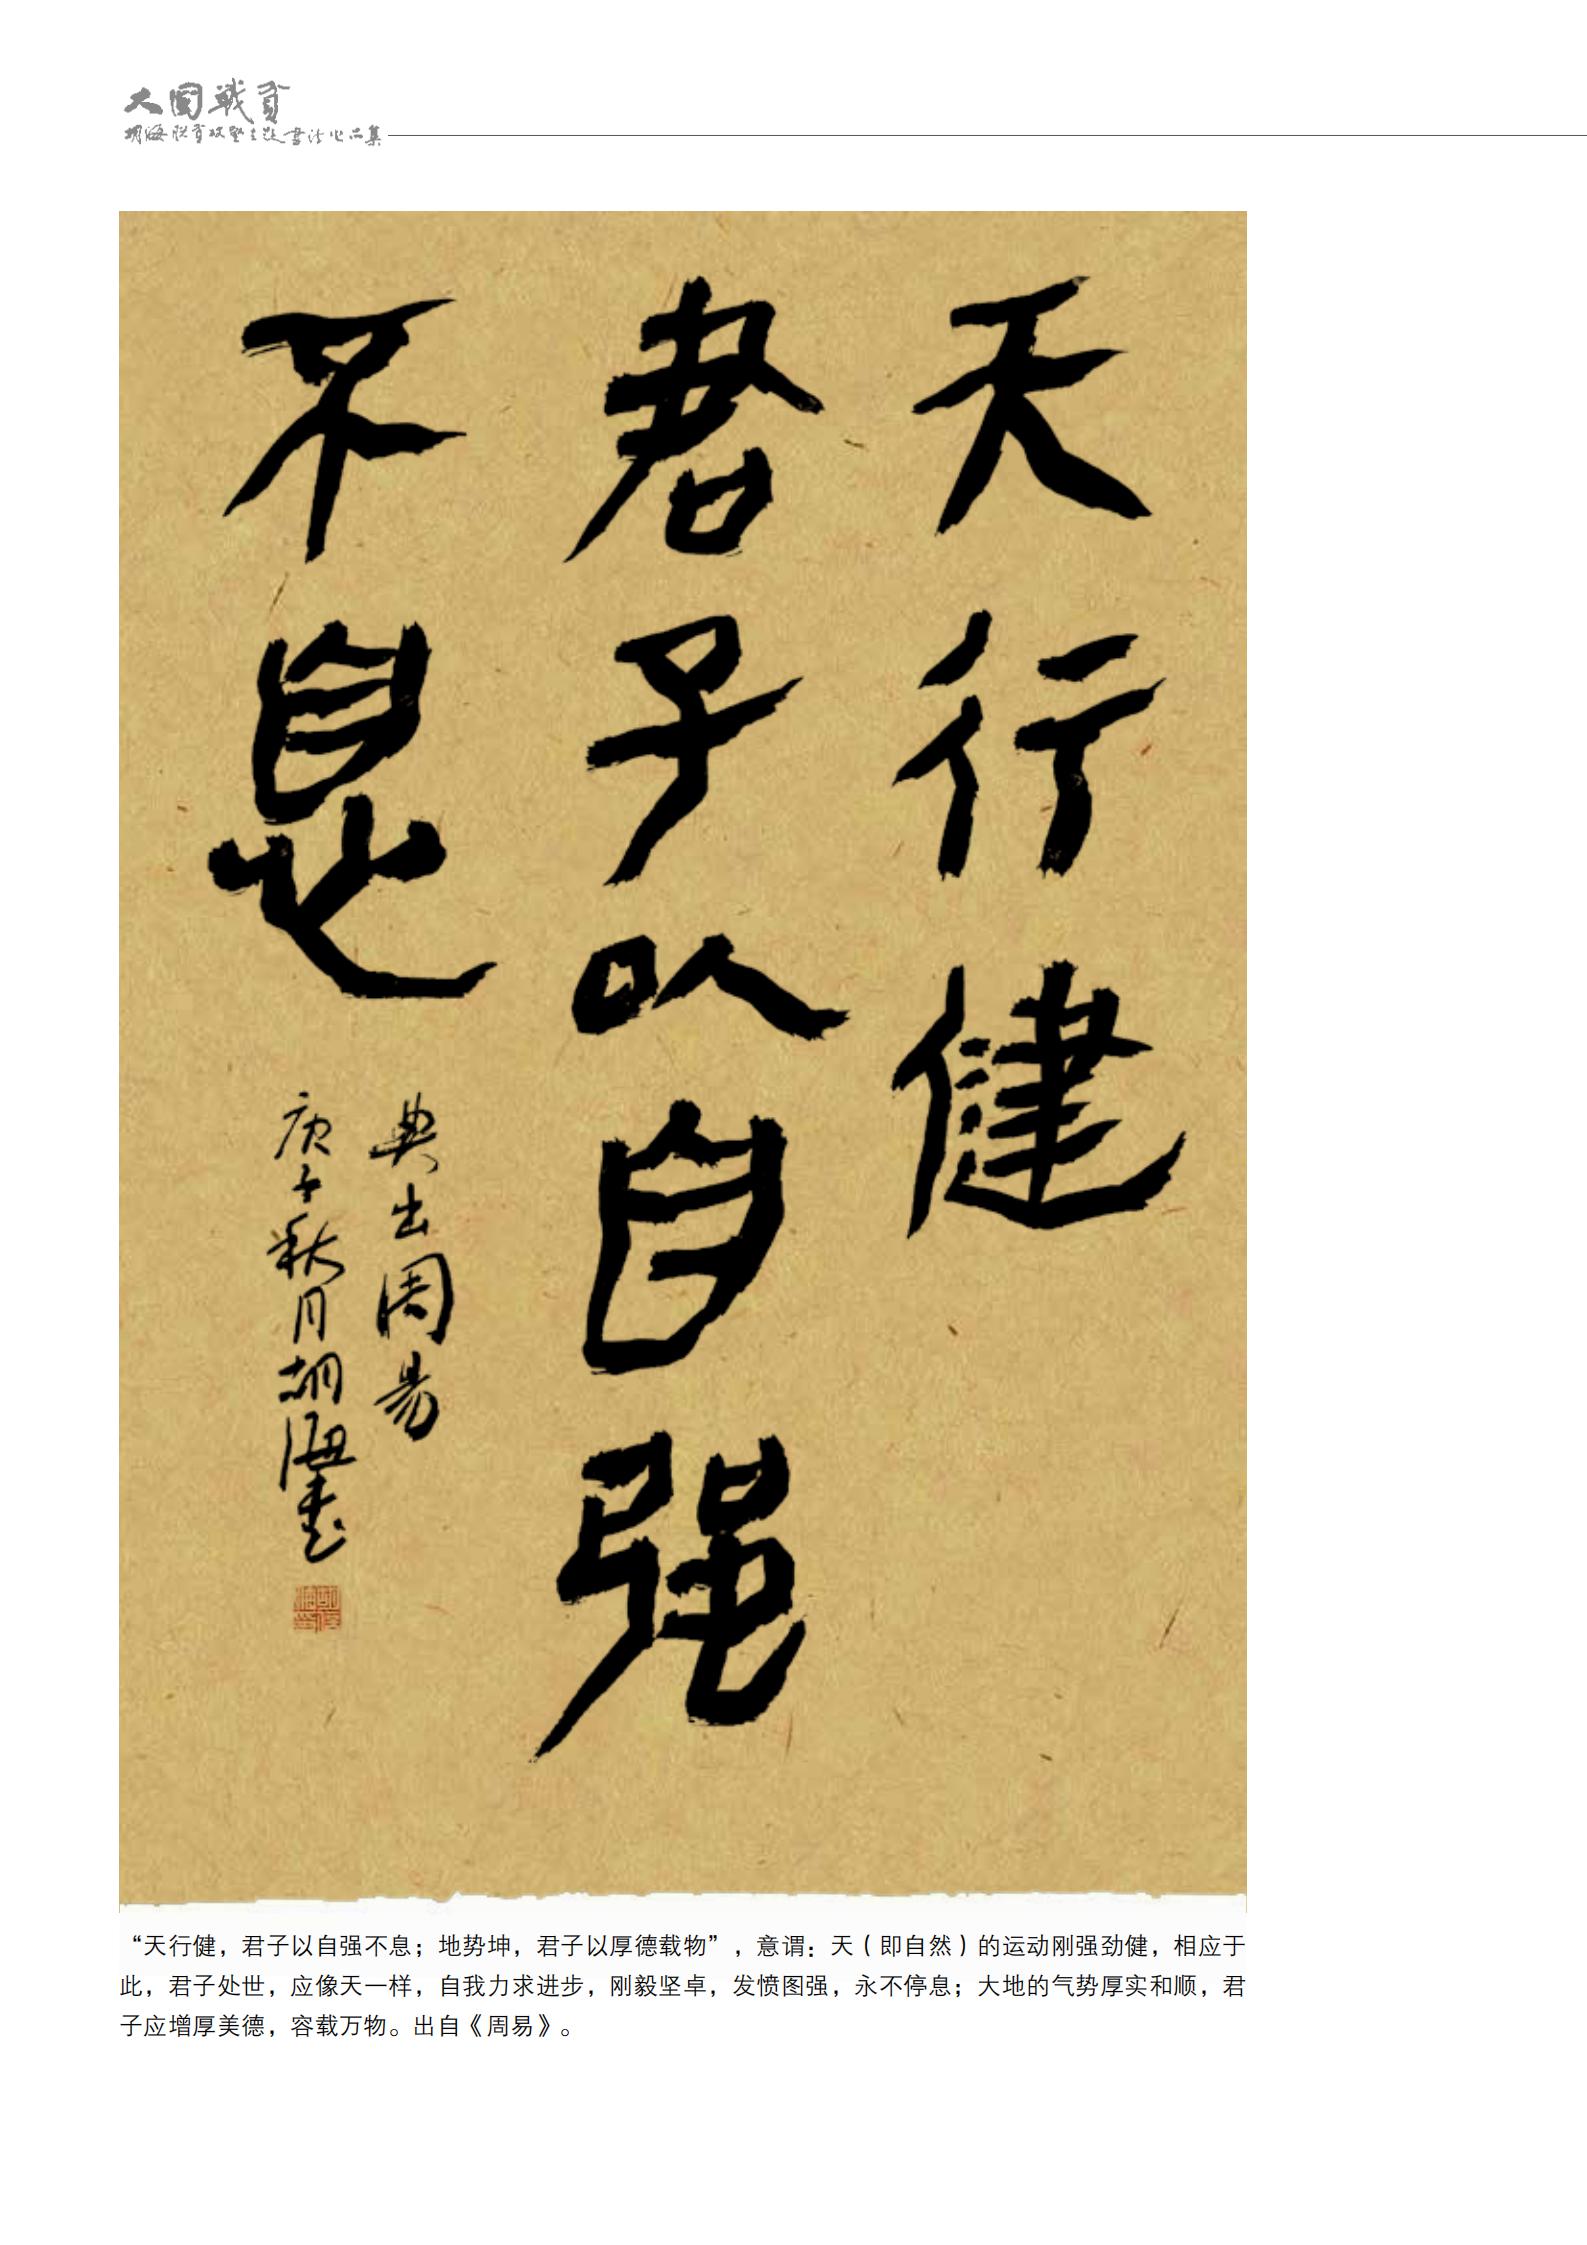 大国戰貧
胡海脱貧攻堅主题書法作品集
天行健
君子以自强
不息
典出周易
庚子秋月胡海書
“天行健，君子以自强不息；地势坤，君子以厚德载物”，意谓：天（即自然）的运动刚强劲健，相应于
此，君子处世，应像天一样，自我力求进步，刚毅坚卓，发愤图强，永不停息；大地的气势厚实和顺，君
子应增厚美德，容载万物。出自《周易》。